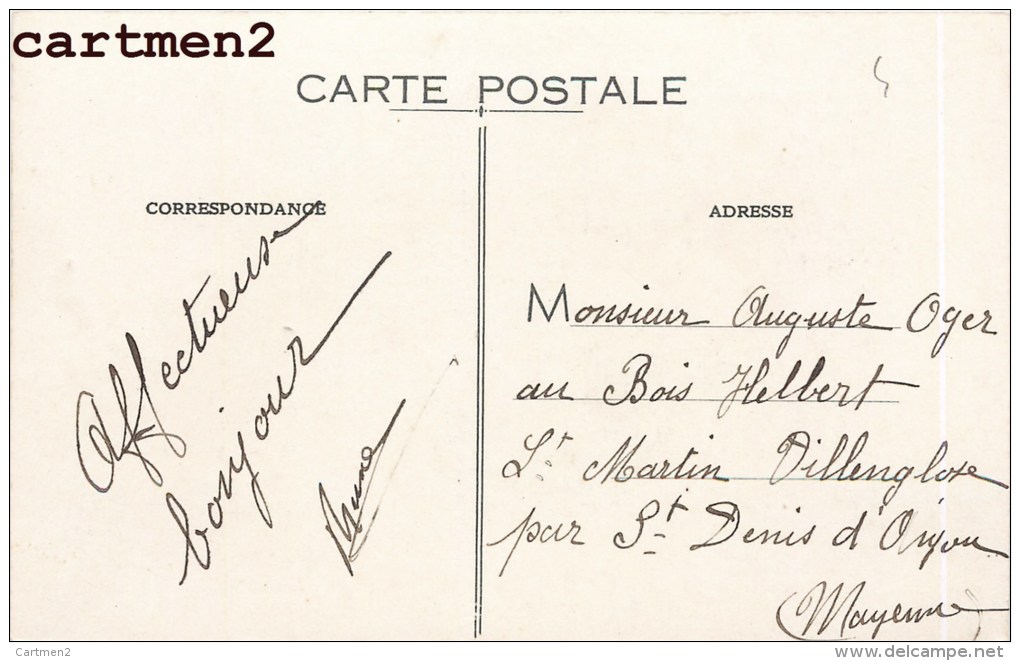 cartmen2
CARTE POSTALE
CORRESPONDANCE
Affectueuse
bonjour
ADRESSE
Monsieur Auguste Oger
au Bois Helbert
St Martin Villenglose
par St Denis d'Anjou
Mayenne
Cartmen2
www.delcampe.net